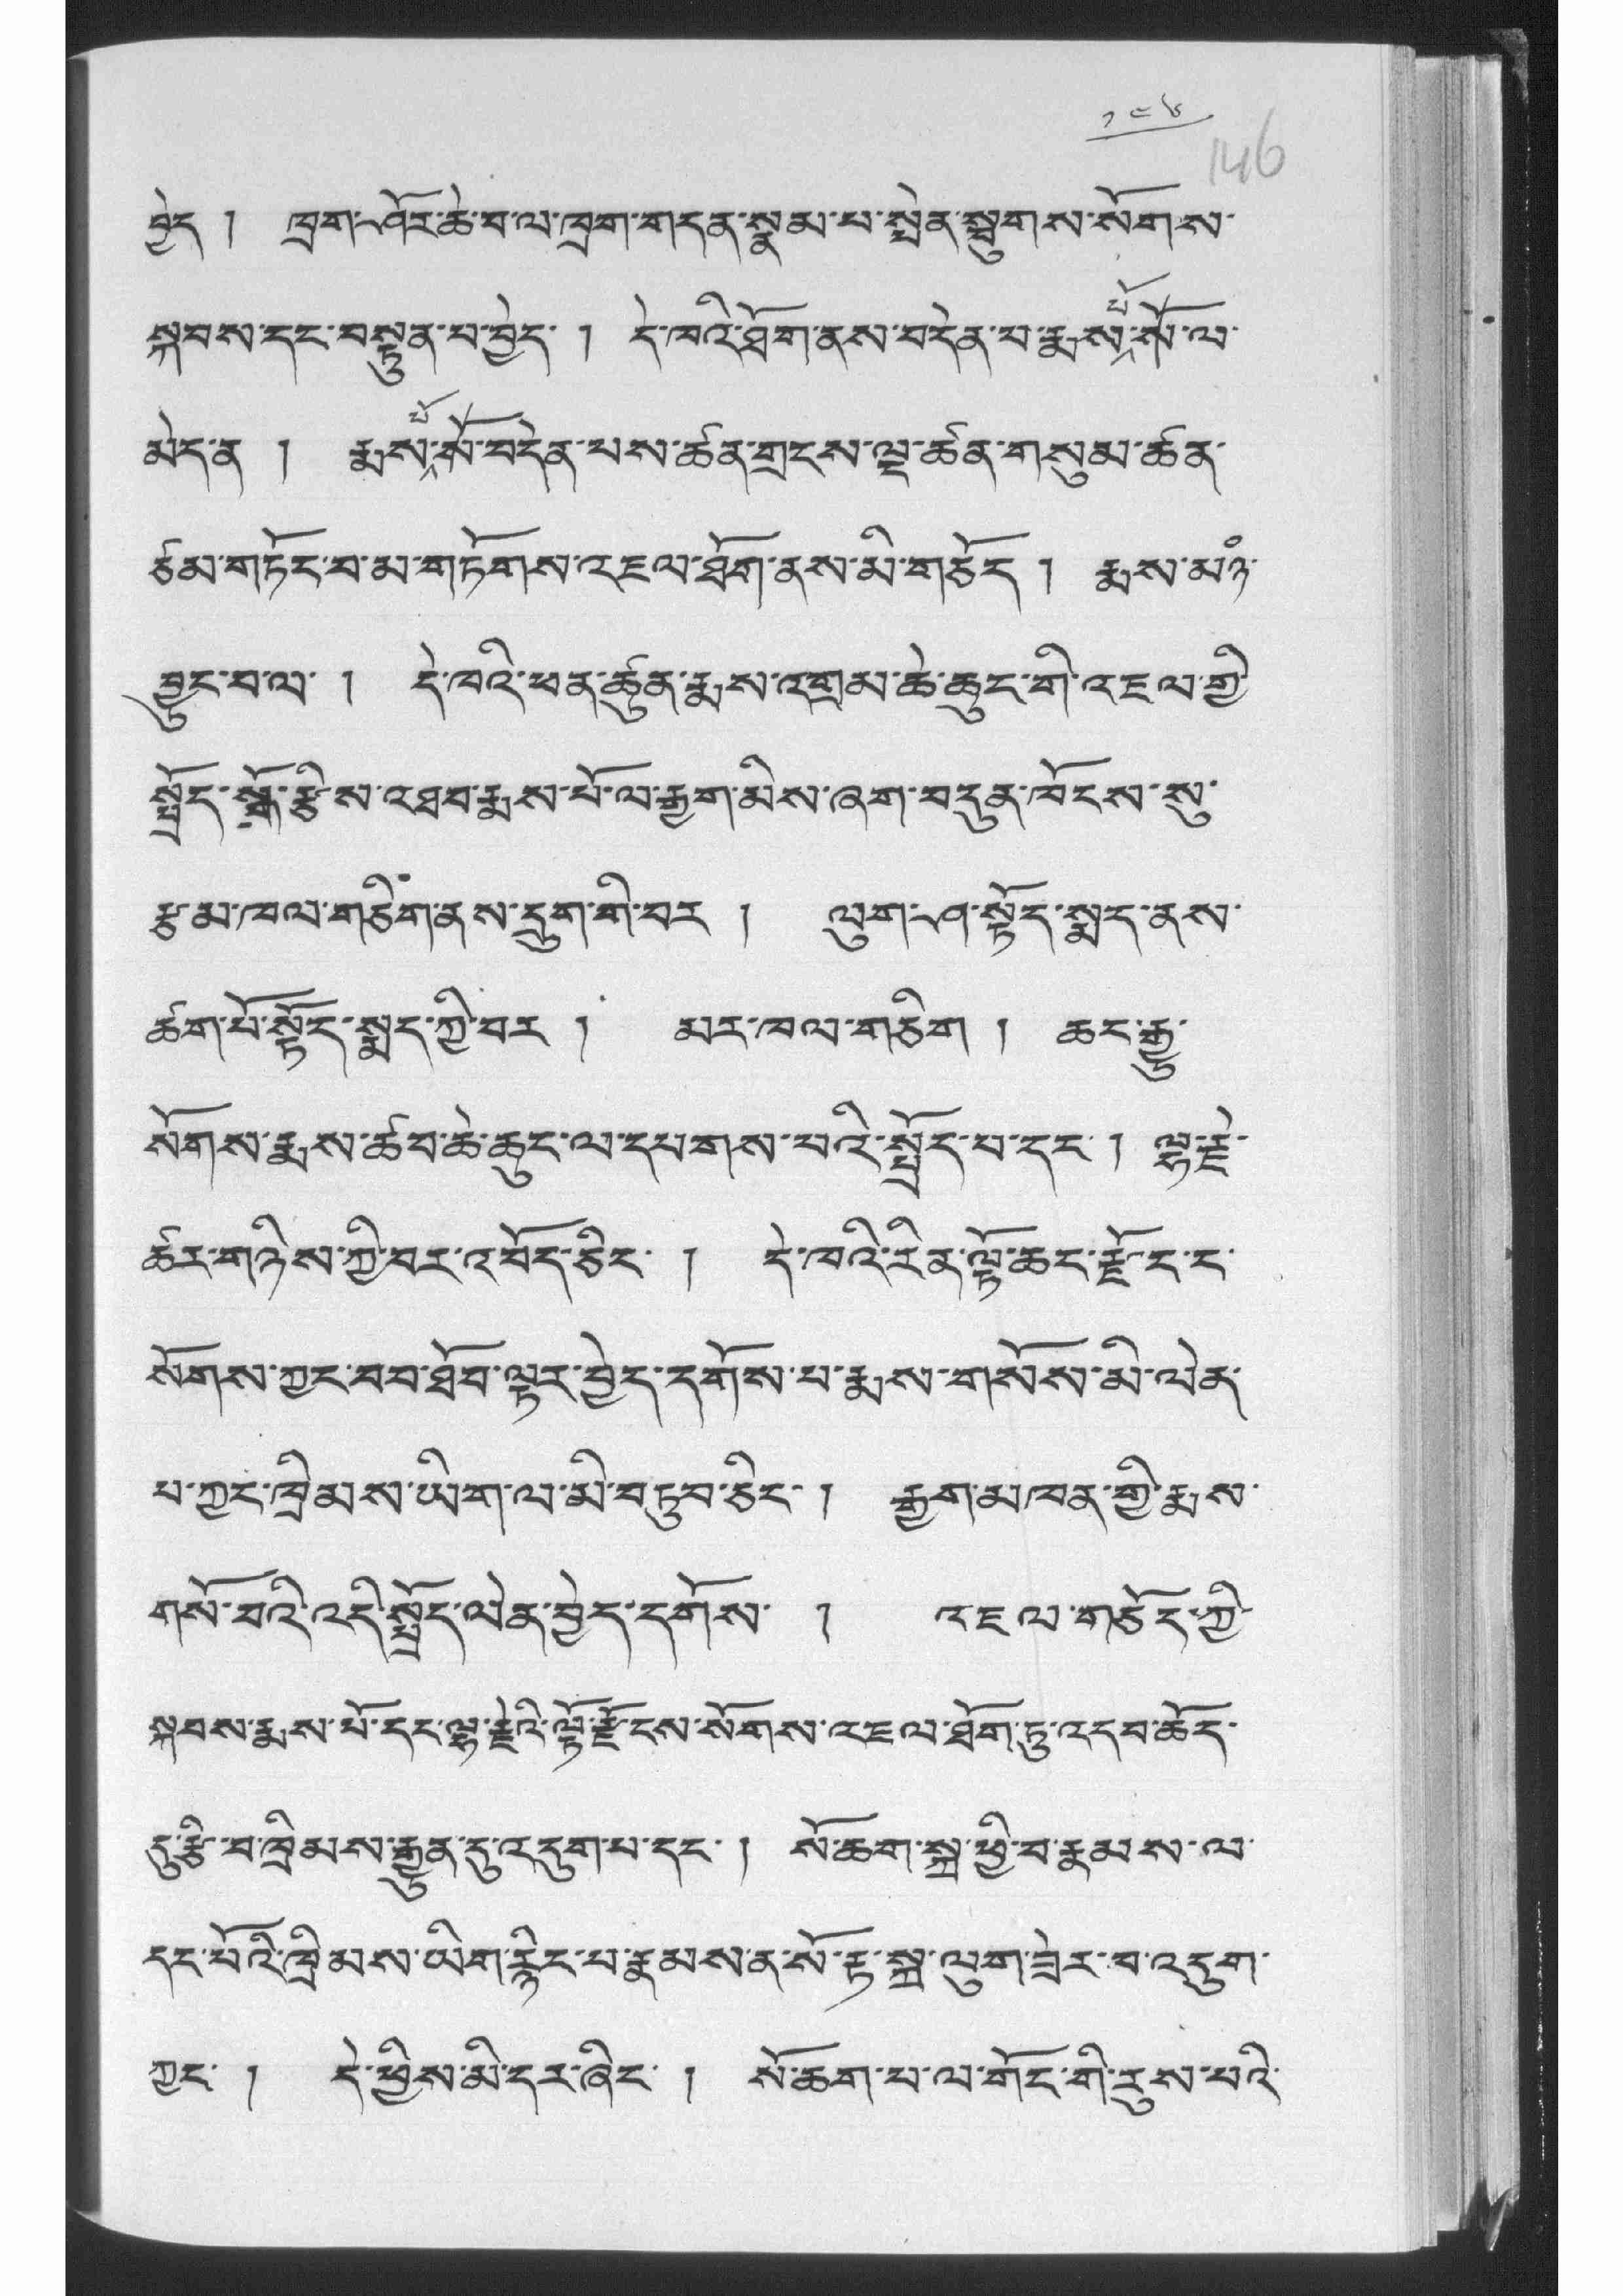 ༡༤༦
146
བྱེད། ཁྲག་ཤོར་ཆེ་བ་ལ་ཁྲག་གདན་སྣམ་པ་སྤེན་སྤུགས་སོགས་
སྐབས་དང་བསྟུན་པ་བྱེད་། དེ་ཁའི་ཐོག་ནས་བདེན་པ་རྨས་པོ་སོ་ལ་
མེད་ན། རྨས་པོ་སོ་བདེན་པས་ཚན་གྲངས་ལྔ་ཚན་གསུམ་ཚན་
ཙམ་གཏོང་བ་མ་གཏོགས་འཇལ་ཐོག་ནས་མི་གཅོད། རྨས་མཉྀ་
བྱུང་བ་ལ་། དེ་ཁའི་ཕན་ཚུན་རྨས་འགྲམ་ཆེ་ཆུང་གི་འཇལ་གྱི་
སྤྲོད་སྒོ་རྩིས་འཐབ་རྨས་པོ་ལ་རྒྱག་མིས་ཞག་བདུན་ཁོངས་སུ་
རྩམ་ཁལ་གཅིག་ནས་དྲུག་གི་བར། ལུག་ཤ་སྟོད་སྨད་ནས་
ཚག་པོ་སྟོད་སྨད་ཀྱི་བར། མར་ཁལ་གཅིག། ཆང་རྒྱུ་
སོགས་རྨས་ཚབ་ཆེ་ཆུང་ལ་དཔགས་པའི་སྤྲོད་པ་དང་། ལྷ་རྗེ་
ཚར་གཉིས་ཀྱི་བར་འབོད་ཅིང་། དེ་ཁའི་རིན་ལྟོ་ཆང་རྫོང་ད་
སོགས་ཀྱང་བབ་ཐོབ་ལྟར་བྱེད་དགོས་པ་རྨས་གསོས་མི་ལེན་
པ་ཀྱང་ཁྲིམས་ཡིག་ལ་མི་བཏུབ་ཅིང་། རྒྱག་མཁན་གྱི་རྨས་
གསོ་བའི་འདི་སྤྲོད་ལེན་བྱེད་དགོས་། འཇལ་གཅོད་ཀྱི་
སྐབས་རྨས་པོ་དང་ལྷ་རྗེའི་ལྟོ་རྫོངས་སོགས་འཇལ་ཐོག་ཏུ་འདབ་ཆོད་
དུ་རྩི་བ་ཁྲིམས་རྒྱུན་དུ་འདུག་པ་དང་། སོ་ཆག་སྐྲ་ཕྱི་བ་རྣམས་ལ་
དང་པོའི་ཁྲིམས་ཡིག་རྙིང་པ་རྣམས་ན་སོ་རྟ་སྐྲ་ལུག་ཟེར་བ་འདུག་
ཀྱང་། དེ་ཕྱིས་མི་དར་ཞིང་། སོ་ཆག་པ་ལ་གོང་གི་རུས་པའི་